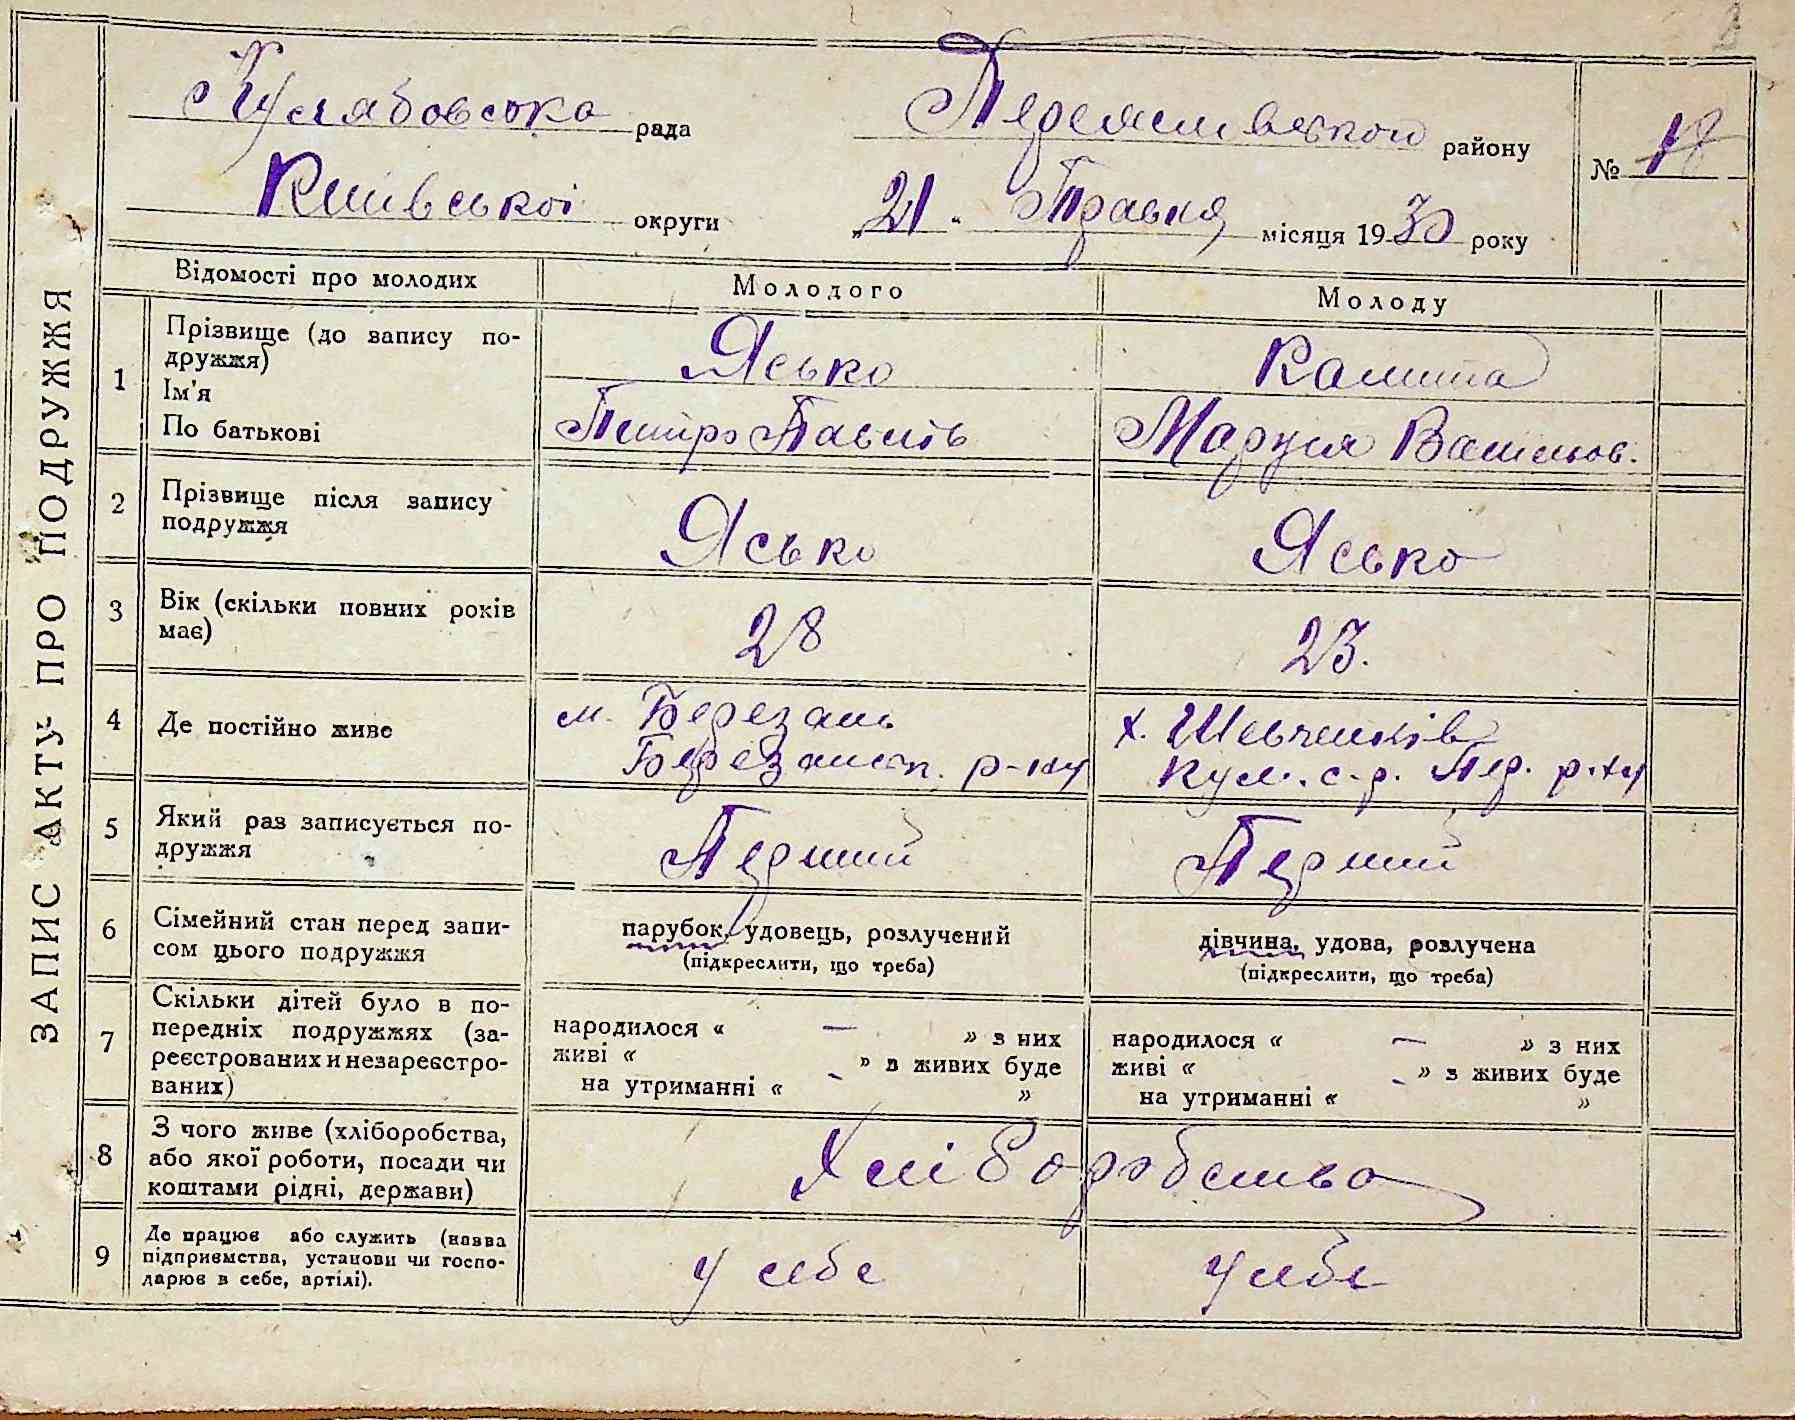 Кулябовська рада Переяслівського району
№ 18
Київської округи „21“ Травня місяця 1930 року
ЗАПИС АКТУ ПРО ПОДРУЖЖЯ
Відомості про молодих Молодого Молоду
1 Прізвище (до запису по-
дружжя) Ясько Калита
Ім'я
По батькові Петро Павлов Маруся Васильов.
2 Прізвище після запису
подружжя Ясько Ясько
3 Вік (скільки повних років
має) 28 23.
4 Де постійно живе м. Березань х. Шевченків
Березанськ. р-ну Кул. с-р. Пер. р-ну
5 Який раз записується по-
дружжя Перший Перший
6 Сімейний стан перед запи-
сом цього подружжя
парубок, удовець, розлучений дівчина, удова, розлучена
(підкреслити, що треба) (підкреслити, що треба)
7 Скільки дітей було в по-
передніх подружжях (за-
реєстрованих и незареєстро-
ваних)
народилося « — » з них народилося « — » з них
живі « » в живих буде живі « » з живих буде
на утриманні « - » на утриманні « - »
8 З чого живе (хліборобства,
або якої роботи, посади чи
коштами рідні, держави) Хліборобство
9 Де працює або служить (назва
підприємства, установи чи госпо-
дарює в себе, артілі).
у себе у себе